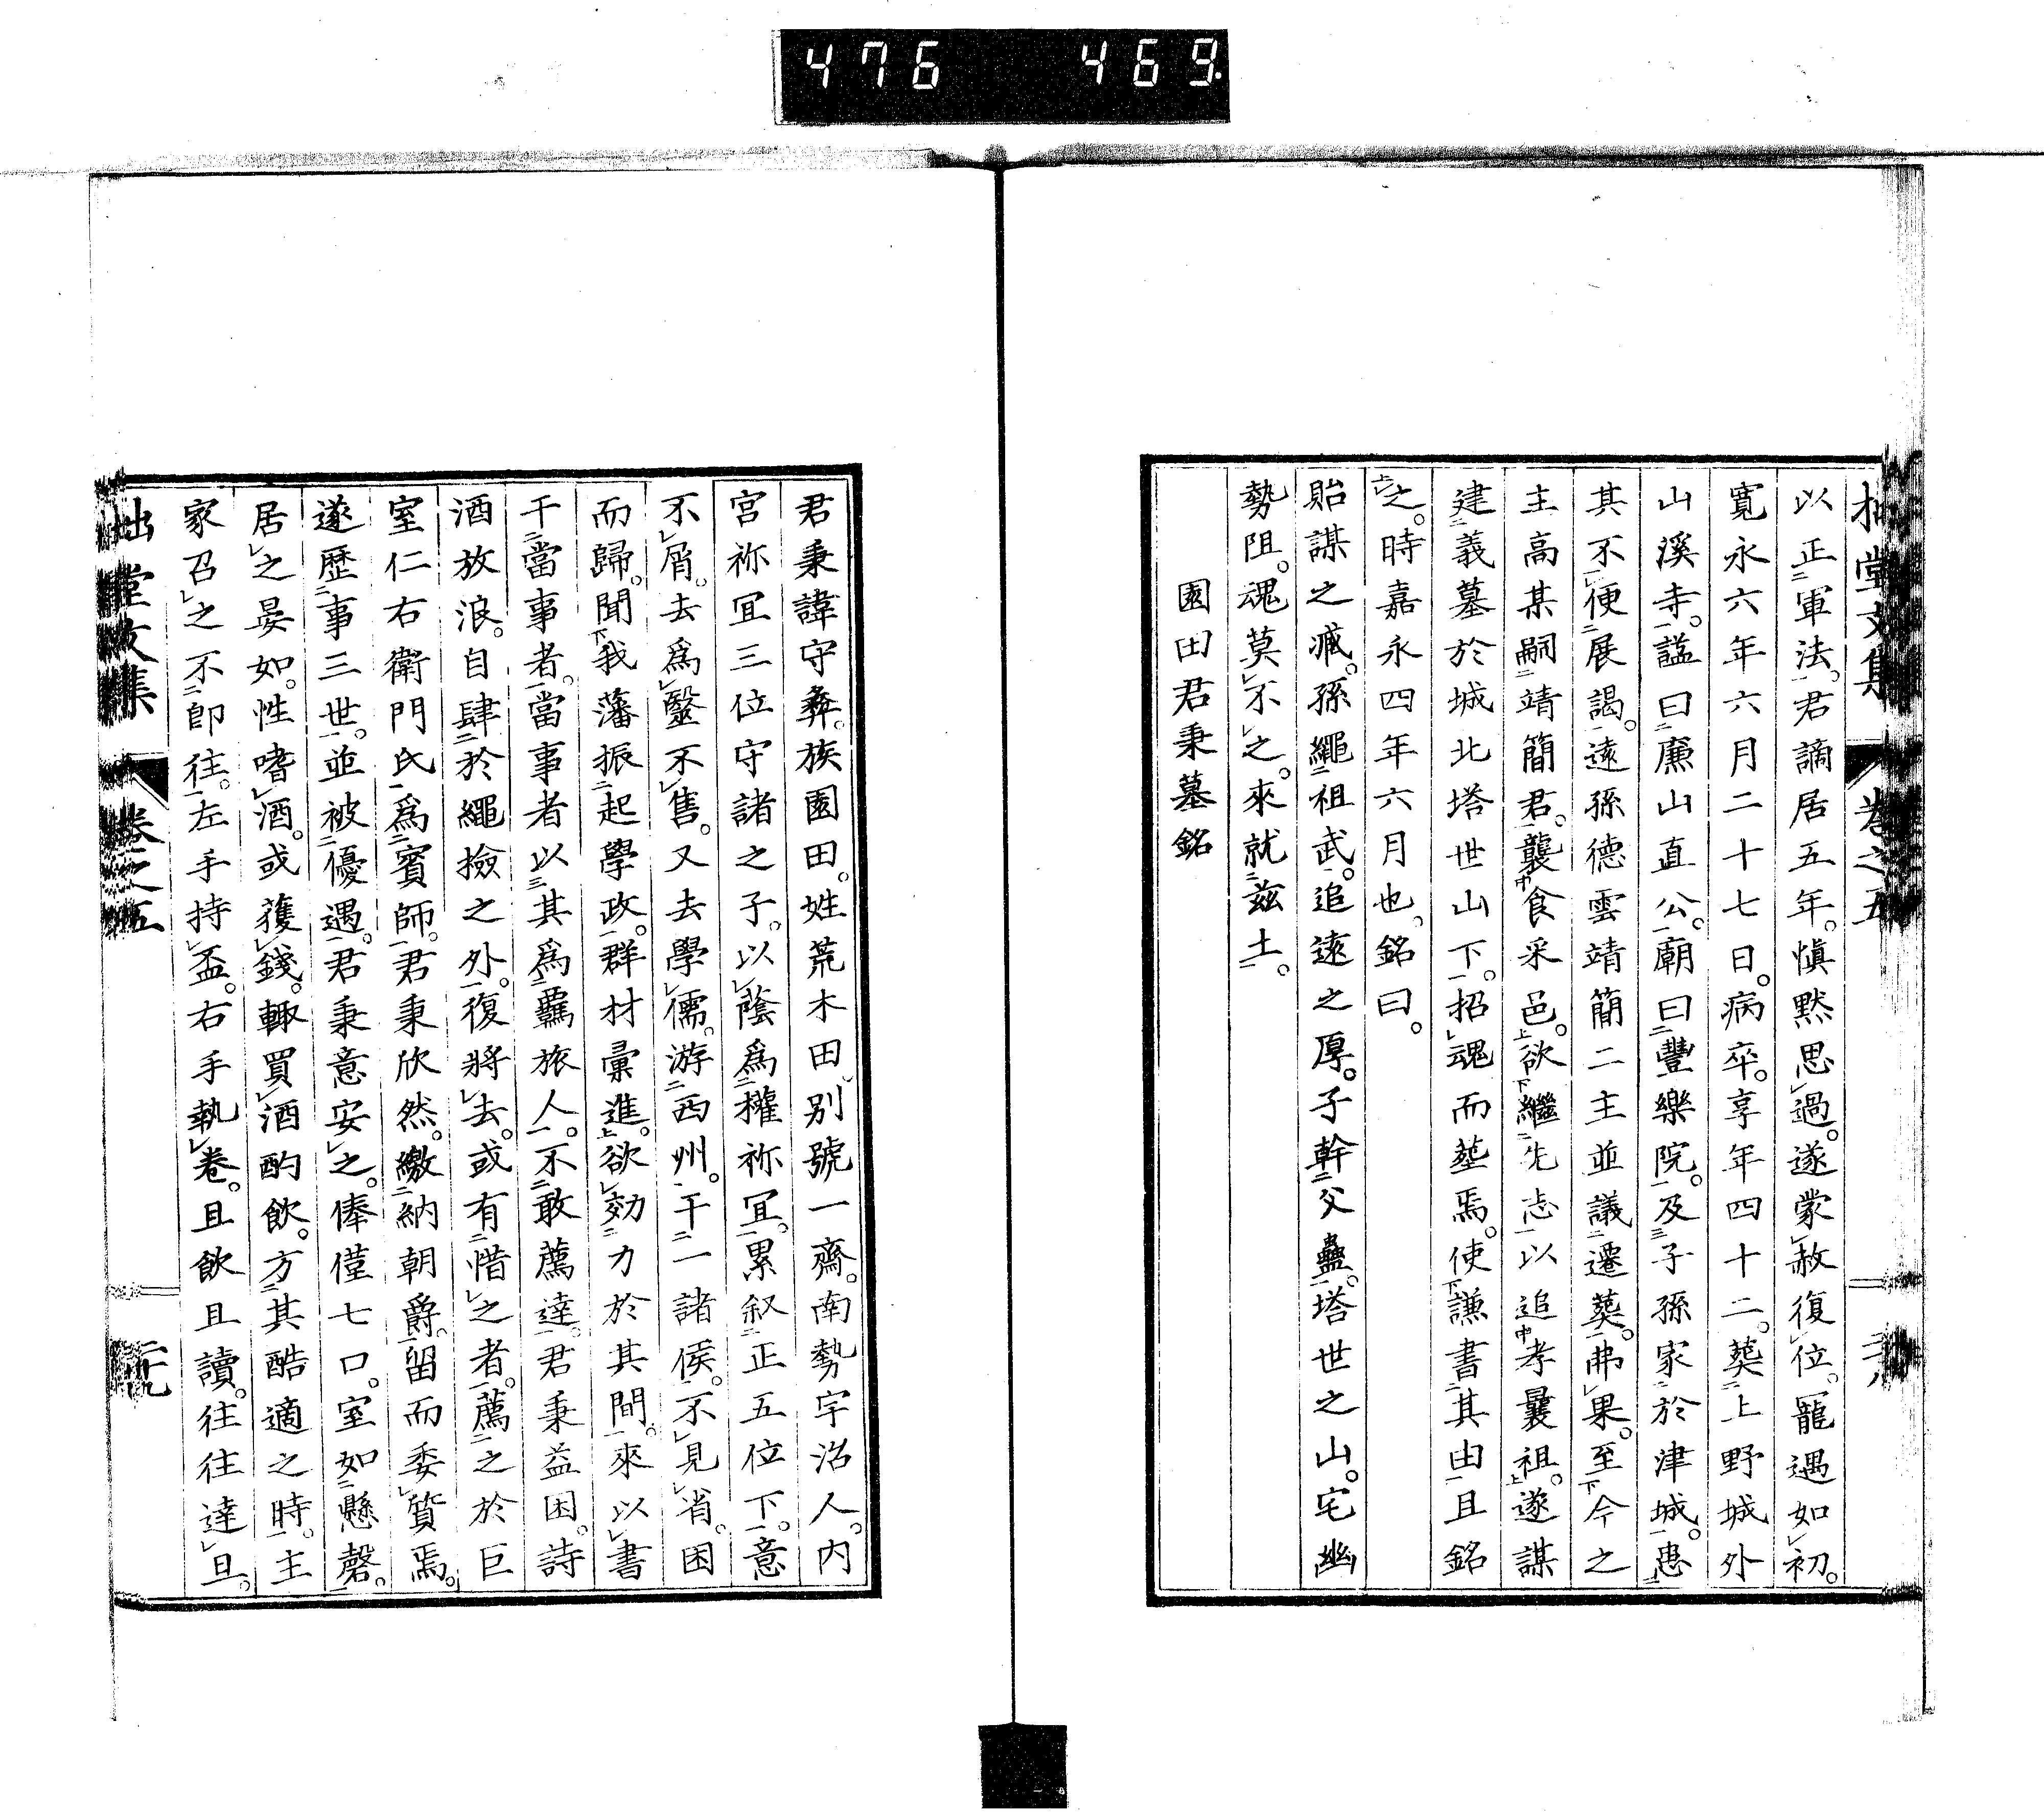 476 469.
拙堂文集 卷之五
以正軍法。君謫居五年。愼默思過。遂蒙赦復位。寵遇如初。
寬永六年六月二十七日。病卒。享年四十二。葬上野城外
山溪寺。謚曰廉山直公。廟曰豐樂院。及子孫家於津城。患
其不便展謁。遠孫德雲靖簡二主並議遷葬。弗果。至今之
主高某嗣靖簡君。襲食采邑。欲繼先志以追孝曩祖。遂謀
建義墓於城北塔世山下。招魂而塟焉。使謙書其由且銘
之。時嘉永四年六月也。銘曰。
貽謀之臧。孫繩祖武。追遠之厚。子幹父蠱。塔世之山。宅幽
勢阻。魂莫不之。來就茲土。
園田君秉墓銘
君秉諱守彝。族園田。姓荒木田。別號一齋。南勢宇治人。內
宮祢宜三位守諸之子。以蔭爲權祢宜。累叙正五位下。意
不屑。去爲毉不售。又去學儒。游西州。干一諸侯。不見省。困
而歸。聞我藩振起學政。群材彙進。欲効力於其間。來以書
干當事者。當事者以其爲羈旅人。不敢薦達。君秉益困。詩
酒放浪。自肆於繩撿之外。復將去。或有惜之者。薦之於巨
室仁右衛門氏爲賓師。君秉欣然。繳納朝爵。留而委質焉。
遂歷事三世。並被優遇。君秉意安之。俸僅七口。室如懸磬。
居之晏如。性嗜酒。或獲錢。輙買酒酌飲。方其酷適之時。主
家召之不卽往。左手持盃。右手執卷。且飲且讀。往往達旦。
拙堂文集 卷之五 二九